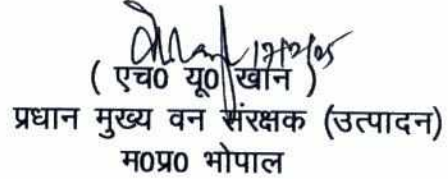 ( एच0 यू0 खान )
प्रधान मुख्य वन संरक्षक (उत्पादन)
म0प्र0 भोपाल